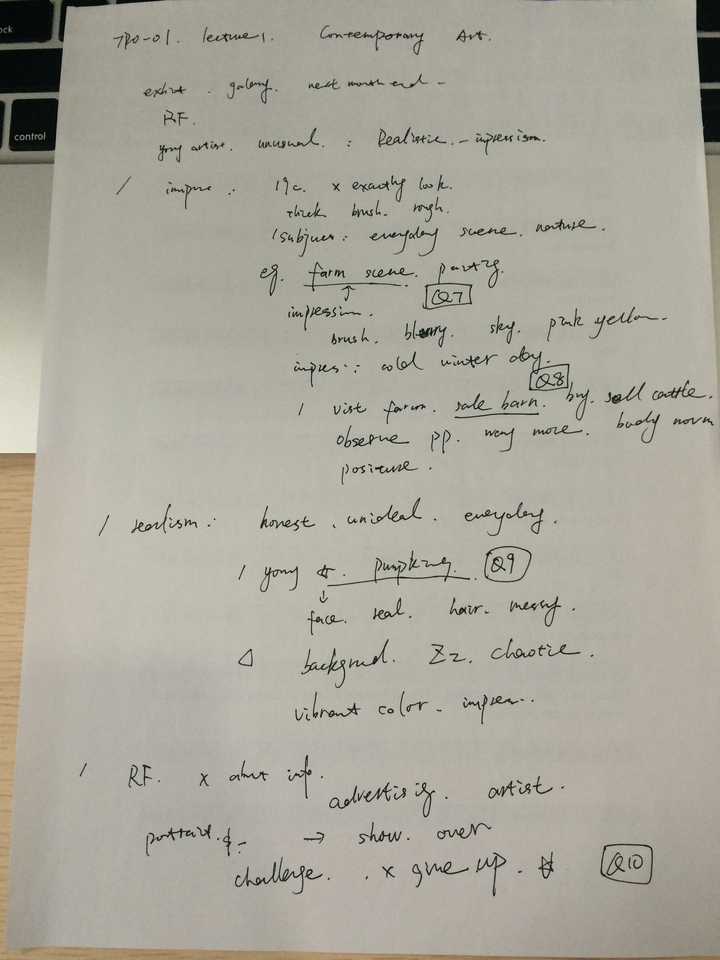 TPO-01. lecture1. Contemporary Art.
exhit. galeny. next month end -
RF.
yong artist. unusual. : Realistic. - impressism.
/ impre : 19c. x exactly look.
thick brush. rough.
/ subject : everyday scene. nature.
eg. farm scene. painting.
↑ Q7
impression.
brush. blurry. sky. pink yellow.
impres : cold winter day.
Q8
/ visit farm. sale barn. buy. sell cattle.
observe pp. way move. body norm
positure.
/ realism : honest. unideal. everyday.
/ yong ☆. pumpking. Q9
↓
face. real. hair. messy.
△ backgrund. Zz. chaotic.
vibrant color - impres..
/ RF. x abut info.
advertisig. artist.
portrait. &- → show. over
challenge. . x give up. Q10
control